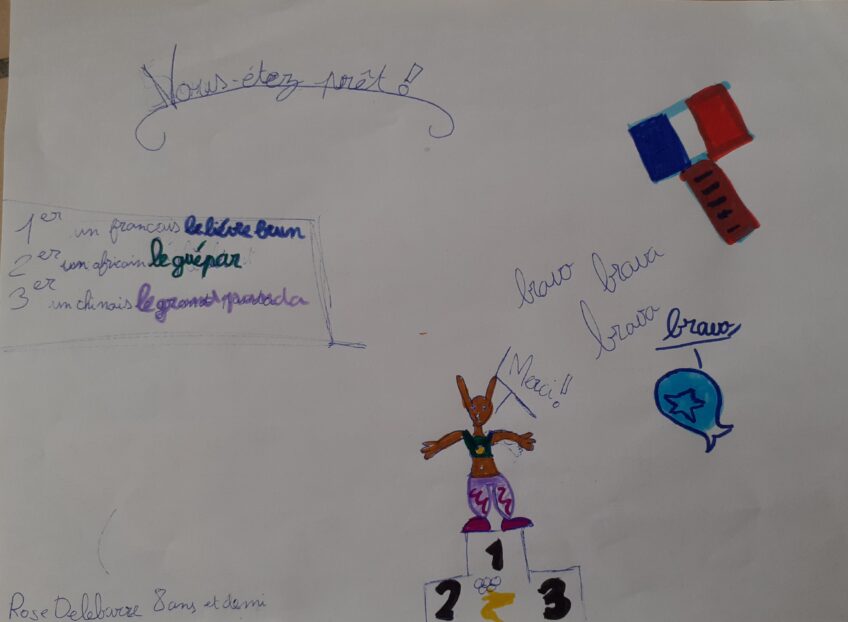 Vous-étez prêt !
1er un français le lièvre brun
2er un africain le guépar
3er un chinois le grand panda
bravo brava
brava bravo
Merci !!
1
2 3
Rose Delebarre 8 ans et demi